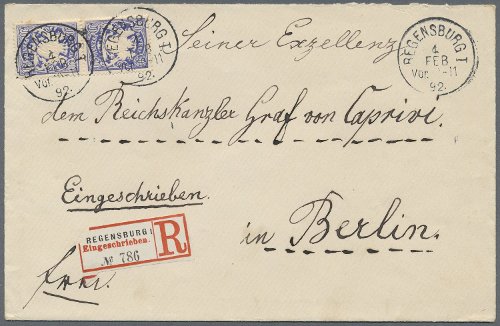 REGENSBURG I
4
FEB
Vor
92.
REGENSBURG I
4
FEB
Vor
11
92.
Seiner Exzellenz
REGENSBURG I
4
FEB
Vor
11
92.
dem Reichskanzler Graf von Caprivi.
Eingeschrieben.
REGENSBURG I
Eingeschrieben.
№ 786
R
in Berlin.
frei.